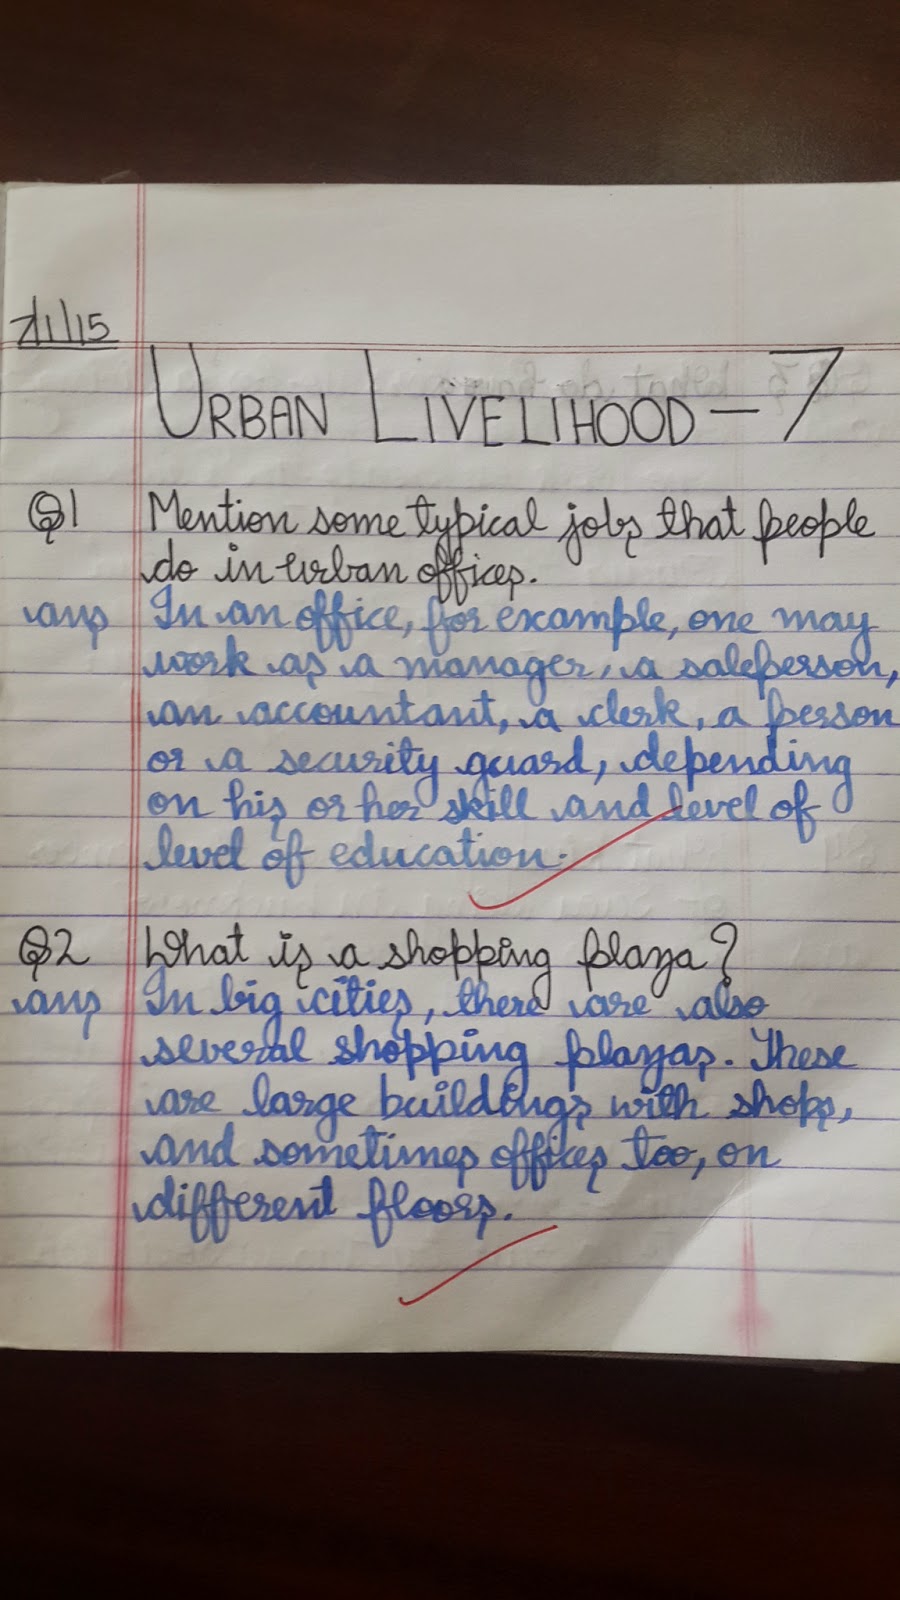 7/1/15
URBAN LIVELIHOOD - 7
Q1 Mention some typical jobs that people
do in urban offices.
ans In an office, for example, one may
work as a manager, a saleperson,
an accountant, a clerk, a person
or a security guard, depending
on his or her skill and level of
level of education.
Q2 What is a shopping plaza?
ans In big cities, there are also
several shopping plazas. These
are large buildings with shops,
and sometimes offices too, on
different floors.